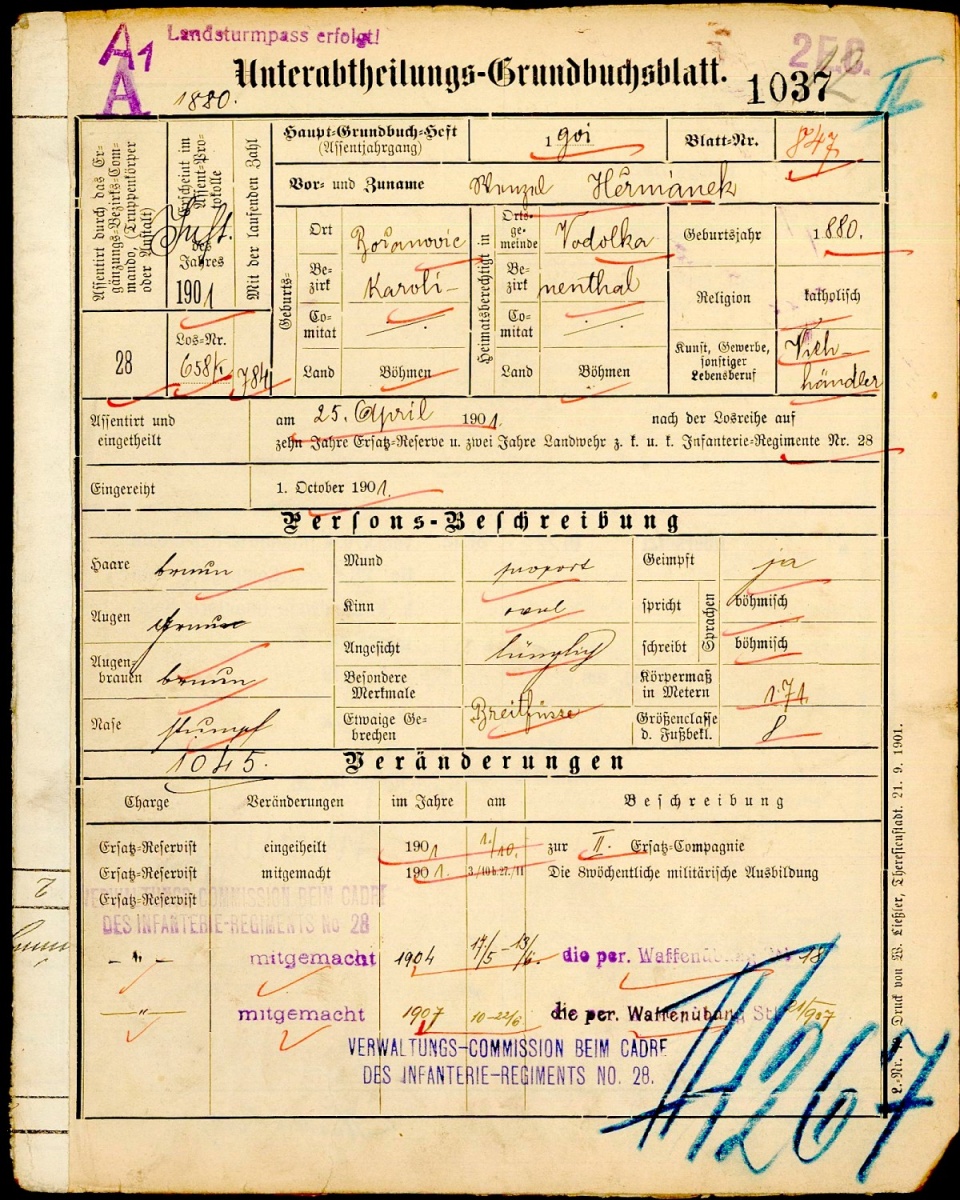 A1
Landsturmpass erfolgt!
A
1880.
Unterabtheilungs-Grundbuchsblatt.
1037
II
Assentirt durch das Ergänzungs-Bezirks-Commando, (Truppenkörper oder Anstalt)
28
Erscheint im Assent-Protokolle
des Jahres
1901
Los-Nr.
Mit der laufenden Zahl
784
Haupt-Grundbuch-Heft
(Assentjahrgang)
1901
Blatt-Nr.
847
Vor- und Zuname Wenzel Heřmánek
Geburts-
Ort
Bezirk Karoli-
Comitat
Land Böhmen
Heimatsberechtigt in
Ortsgemeinde Vodolka
Bezirk nenthal
Comitat
Land Böhmen
Geburtsjahr 1880.
Religion katholisch
Kunst, Gewerbe, sonstiger Lebensberuf
Vieh-
händler
Assentirt und eingetheilt
am 25. April 1901. nach der Losreihe auf
zehn Jahre Ersatz-Reserve u. zwei Jahre Landwehr z. k. u. k. Infanterie-Regimente Nr. 28
Eingereiht 1. October 1901.
Persons-Beschreibung
Haare braun
Augen graue
Augenbrauen braun
Nase stumpf
Mund proport
Kinn oval
Angesicht länglich
Besondere Merkmale
Etwaige Gebrechen Breitfüsse
Geimpft ja
Sprachen
spricht böhmisch
schreibt böhmisch
Körpermaß in Metern 1.71
Größenclasse d. Fußbekl. 8
1045.
Veränderungen
Charge Veränderungen im Jahre am Beschreibung
Ersatz-Reservist eingetheilt 1901 1./10. zur II. Ersatz-Compagnie
Ersatz-Reservist mitgemacht 1901. 3./10 b. 27./11 Die 8wöchentliche militärische Ausbildung
Ersatz-Reservist
VERWALTUNGS-COMMISSION BEIM CADRE
DES INFANTERIE-REGIMENTS No 28
– " – mitgemacht 1904 17/5 – 13/6. die per. Waffenübung 18
– " – mitgemacht 1907 10–22/6 die per. Waffenübung
VERWALTUNGS-COMMISSION BEIM CADRE
DES INFANTERIE-REGIMENTS NO. 28.
267
Druck von W. Ließler, Theresienstadt. 21. 9. 1901.